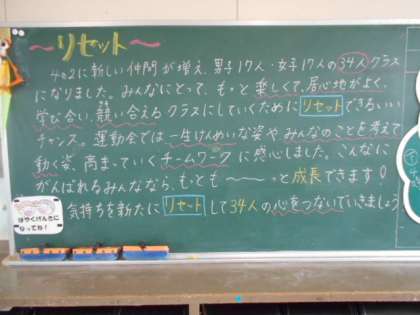 ～リセット～
4の2に新しい仲間が増え、男子17人・女子17人の34人クラス
になりました。みんなにとって、もっと楽しくて、居心地がよく、
学び合い、競い合えるクラスにしていくためにリセットできるいい
チャンス。運動会では一生けんめいな姿やみんなのことを考えて
動く姿、高まっていくチームワークに感心しました。こんなに
がんばれるみんななら、もっと も～～～っと成長できます！
気持ちを新たにリセットして34人の心をつないでいきましょう
はやくげんきに
なってね！